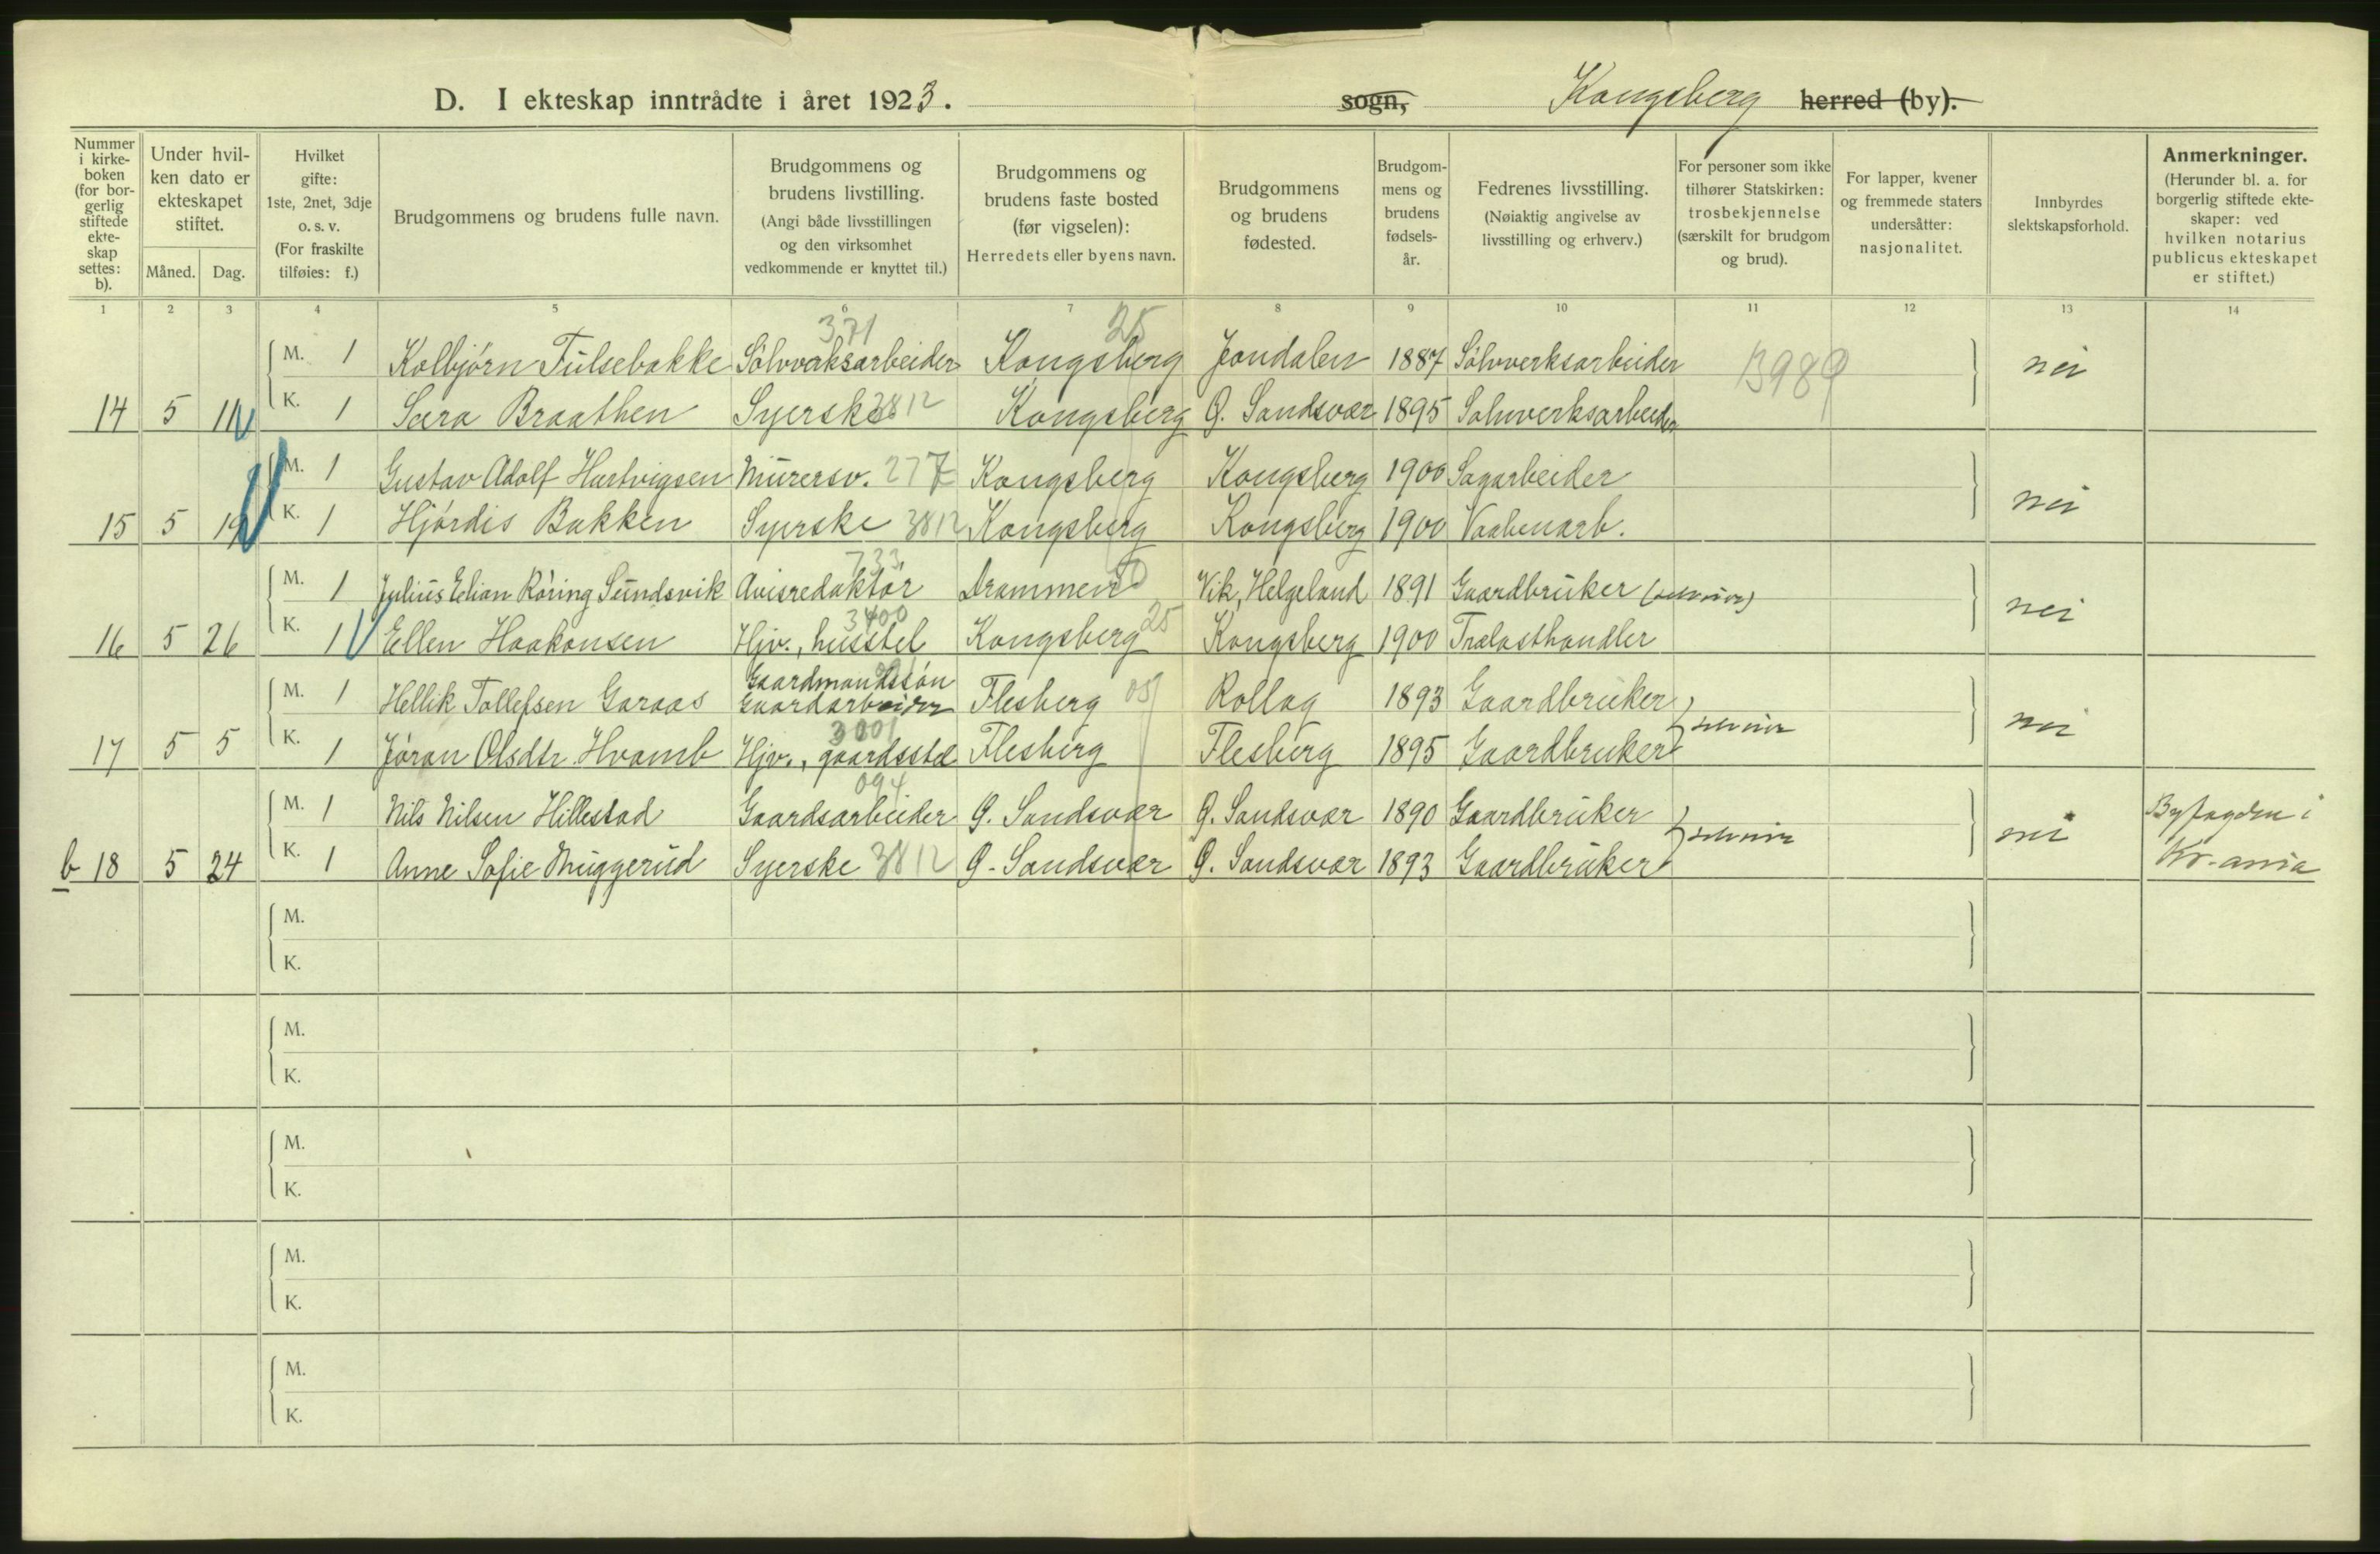 D. I ekteskap inntrådte i året 1923. sogn, Kongsberg herred (by).
Nummer i kirkeboken (for borgerlig stiftede ekteskap settes: b).
Under hvilken dato er ekteskapet stiftet.
Måned. Dag.
Hvilket gifte: 1ste, 2net, 3dje o. s. v. (For fraskilte tilføies: f.)
Brudgommens og brudens fulle navn.
Brudgommens og brudens livstilling. (Angi både livsstillingen og den virksomhet vedkommende er knyttet til.)
Brudgommens og brudens faste bosted (før vigselen): Herredets eller byens navn.
Brudgommens og brudens fødested.
Brudgommens og brudens fødselsår.
Fedrenes livsstilling. (Nøiaktig angivelse av livsstilling og erhverv.)
For personer som ikke tilhører Statskirken: trosbekjennelse (særskilt for brudgom og brud).
For lapper, kvener og fremmede staters undersåtter: nasjonalitet.
Innbyrdes slektskapsforhold.
Anmerkninger. (Herunder bl. a. for borgerlig stiftede ekteskaper: ved hvilken notarius publicus ekteskapet er stiftet.)
1 2 3 4 5 6 7 8 9 10 11 12 13 14
371 25
M. 1 Kolbjørn Tulsebakke Sølvverksarbeider Kongsberg Jondalen 1887 Sølvverksarbeider B989 nei
14 5 11 K. 1 Sara Braathen Syerske 3812 Kongsberg Ø. Sandsvær 1895 Sølvverksarbeider
M. 1 Gustav Adolf Hartvigsen Murersv. 277 Kongsberg Kongsberg 1900 Sagarbeider
15 5 19 K. 1 Hjørdis Bakken Syerske 3812 Kongsberg Kongsberg 1900 Vaabenarb. nei
733
M. 1 Julius Elian Røring Sundsvik Avisredaktør Drammen Vik, Helgeland 1891 Gaardbruker
3400 25
16 5 26 K. 1 Ellen Haakonsen Hjv., husstel Kongsberg Kongsberg 1900 Trælasthandler nei
Gaardmandssøn
M. 1 Hellik Tollefsen Garaas Gaardarbeider Flesberg Rollag 1893 Gaardbruker
3001
17 5 5 K. 1 Jøran Olsdtr Hvamb Hjv., gaardsstel Flesberg Flesberg 1895 Gaardbruker nei
094
M. 1 Nils Nilsen Hillestad Gaardsarbeider Ø. Sandsvær Ø. Sandsvær 1890 Gaardbruker nei Byfogden i
b 18 5 24 K. 1 Anne Sofie Muggerud Syerske 3812 Ø. Sandsvær Ø. Sandsvær 1893 Gaardbruker Kr.ania
M.
K.
M.
K.
M.
K.
M.
K.
M.
K.